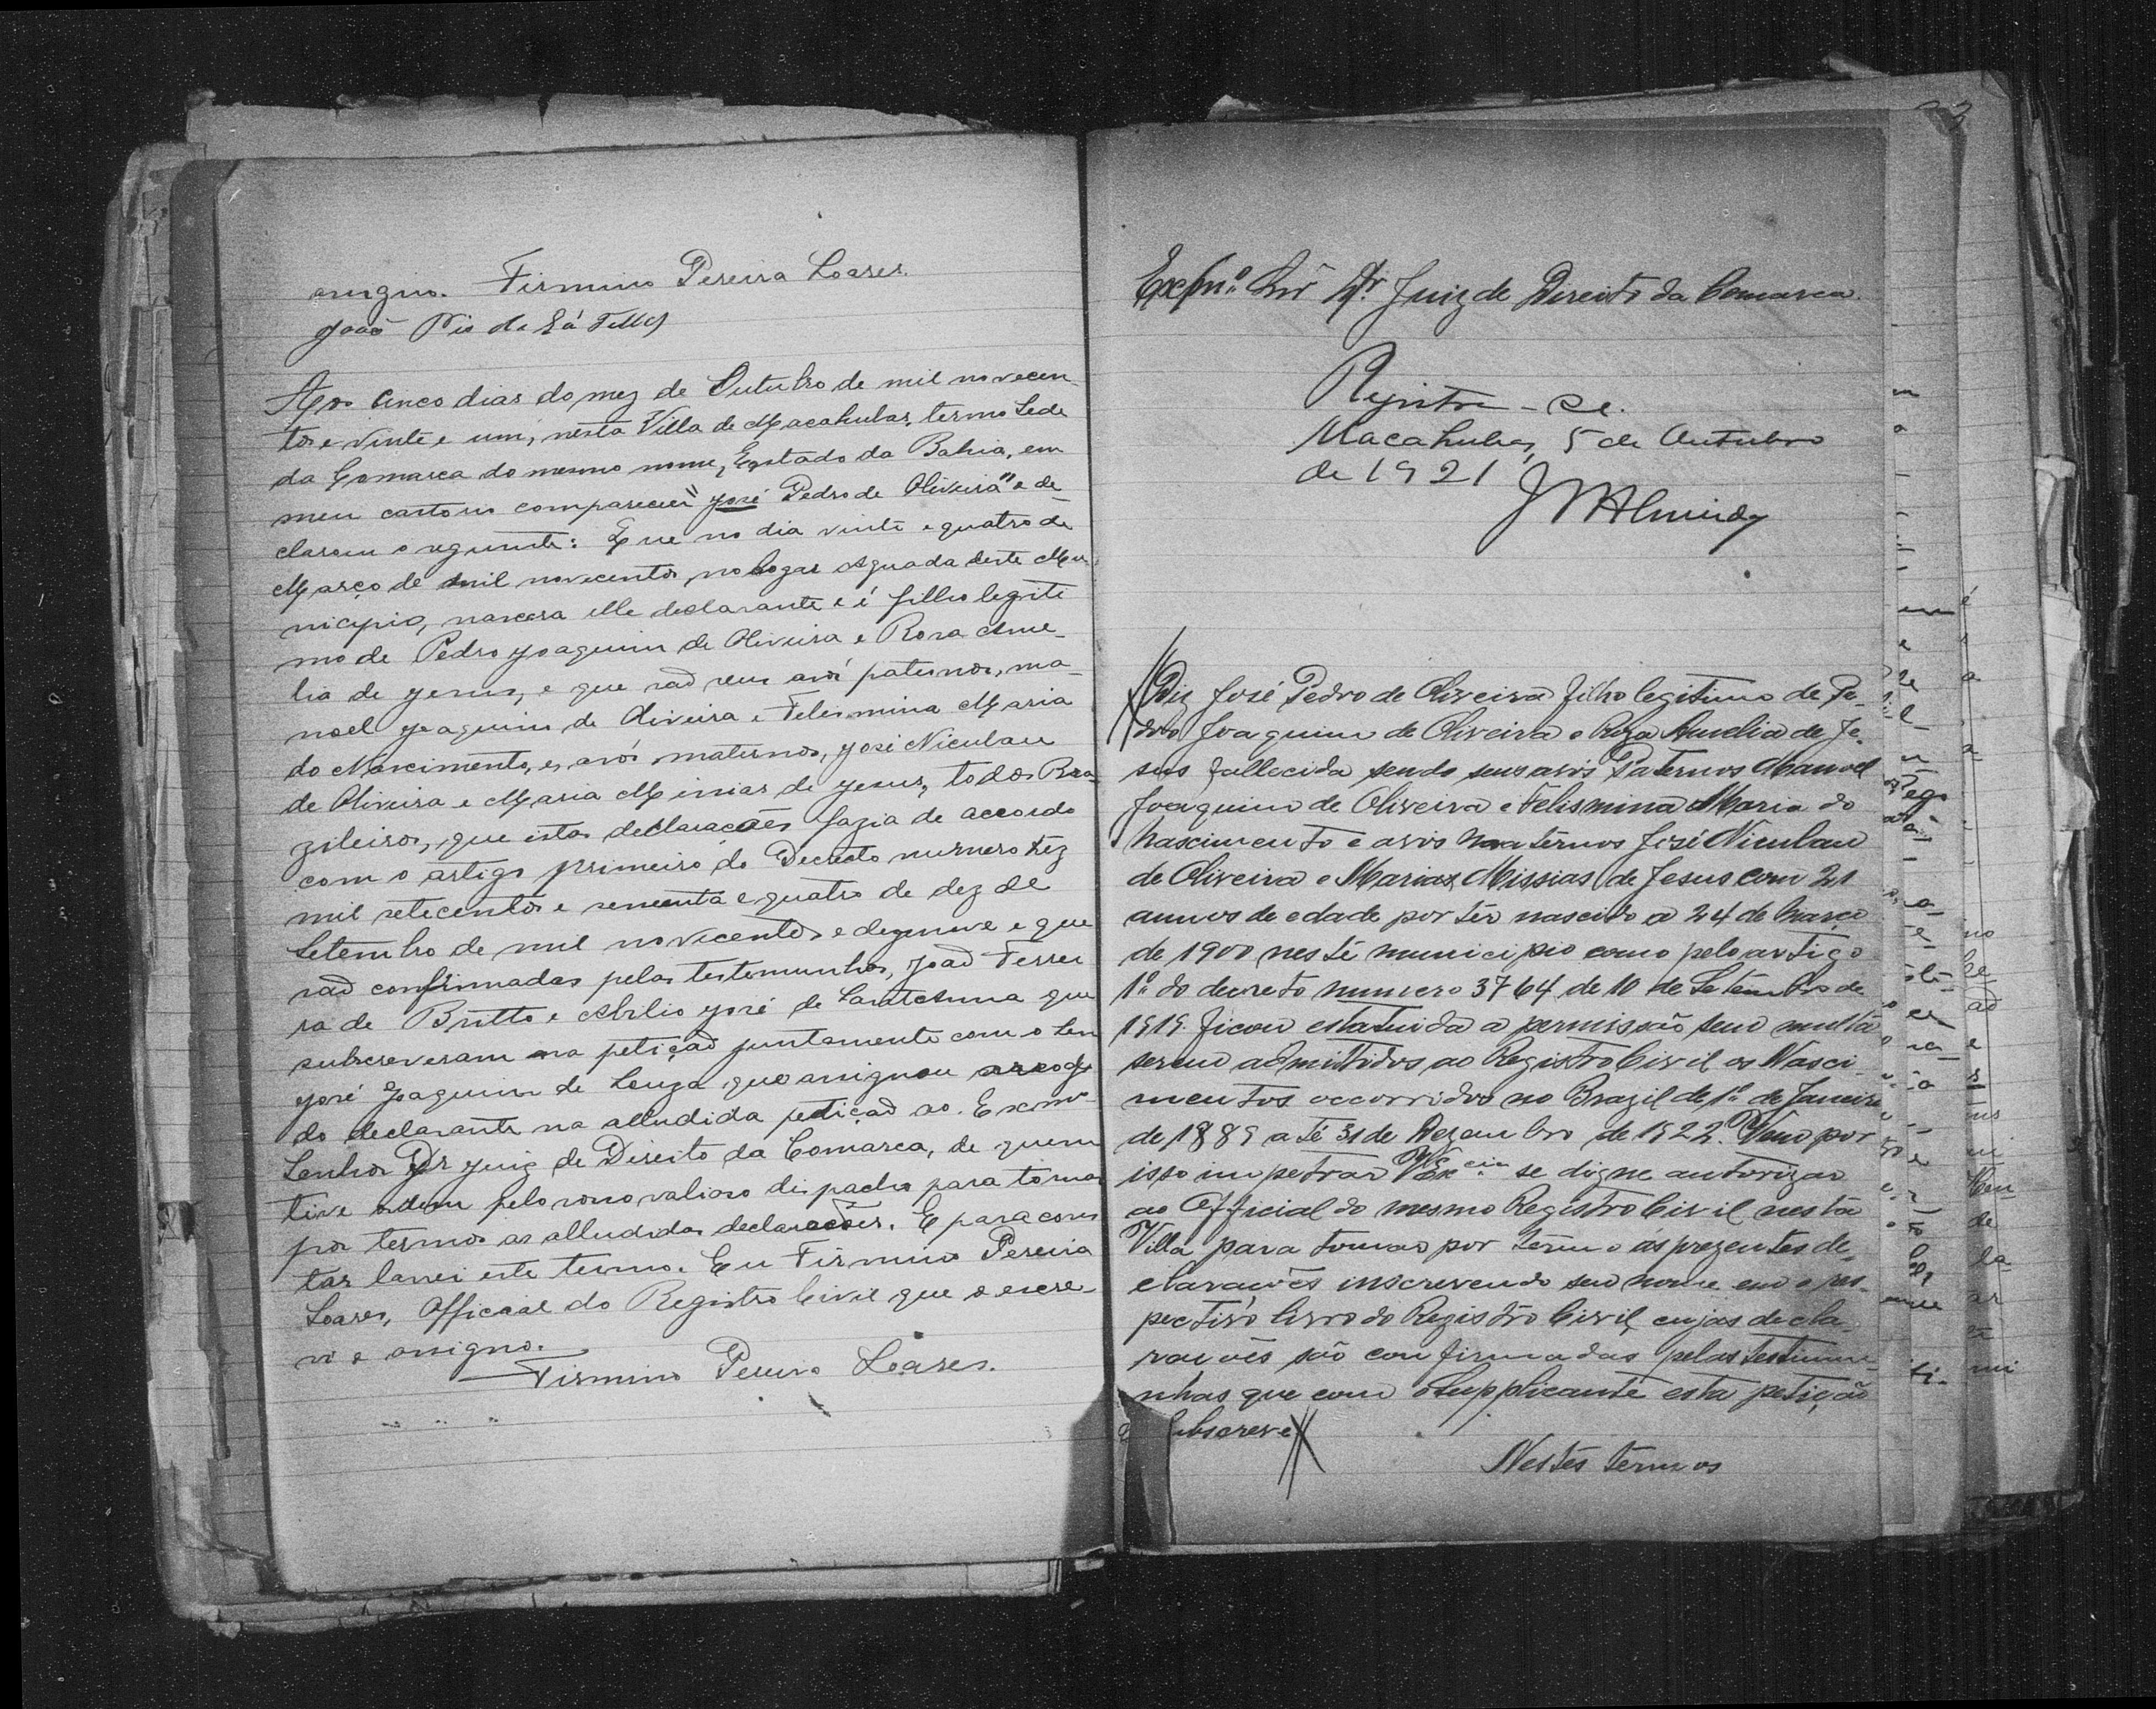 assigno. Firmino Pereira Soares.
João Pio de Sá Telles
Aos cinco dias do mez de Outubro de mil novecen
tos e vinte e um, nesta Villa de Macahubas, termo sede
da Comarca do mesmo nome, Estado da Bahia, em
meu cartorio compareceu "José Pedro de Oliveira" e de
clarou o seguinte: Que no dia vinte e quatro de
Março de mil novecentos, no logar Aguada deste Mu
nicipio, nascera elle declarante e é filho legiti
mo de Pedro Joaquim de Oliveira e Rosa Ame_
lia de Jesus, e que são seus avós paternos, ma_
noel Joaquim de Oliveira e Felismina Maria
do Nascimento, e avós maternos, José Niculau
de Oliveira e Maria Missias de Jesus, todos Bra
zileiros, que estas declarações fazia de accordo
com o artigo primeiro do Decreto numero trez
mil setecentos e sessenta e quatro de dez de
Setembro de mil novecentos e dezenove e que
são confirmadas pelas testemunhas, João Ferrei
ra de Britto e Abilio José de SantAnna que
subscreveram na petição juntamente com o Sen
José Joaquim de Souza que assignou arogo
do declarante na alludida petição ao Exmo
Senhor Dr Juiz de Direito da Comarca, de quem
tive ordem pelo seu valioso despacho para tomar
por termos as alludidas declarações. E para cons
tar lavrei este termo. Eu Firmino Pereira
Soares, Official do Registro Civil que o escre_
vi e assigno.
Firmino Pereira Soares.
Exmº Snr Dr. Juiz de Direito da Comarca.
Registre-se.
Macahubas, 5 de Outubro
de 1921
Diz José Pedro de Oliveira filho legitimo de Pe_
dro Joaquim de Oliveira e Roza Amelia de Je_
sus fallecida sendo seus avós Paternos Manoel
Joaquim de Oliveira e Felismina Maria do
Nascimento e avós Maternos José Niculau
de Oliveira e Maria Missias de Jesus com 21
annos de edade por ter nascido a 24 de março
de 1900 neste municipio como pelo artigo
1º do decreto numero 3764 de 10 de Setembro de
1919. ficou estatuida a permissão sem multa
serem admittidos ao Registro Civil os Nasci_
mentos occorridos no Brazil de 1º de Janeiro
de 1889 até 31 de Dezembro de 1922. Vem por
isso impetrar VExcia se digne autorizar
ao Official do mesmo Registro Civil nesta
Villa para tomar por termo as prezentes de_
clarações inscrevendo seu nome em o res_
pectivo livro do Registro Civil, cujas decla_
rações são confirmadas pelas testimu_
nhas que com o Supplicante esta petição
subscreve
Nestes termos